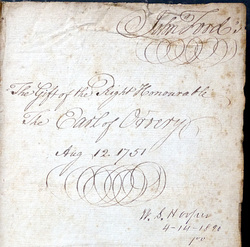 John Ford's
The Gift of the Right Honourable
The Earl of Orrery
Aug 12 1751
W. S. H
4-14-18